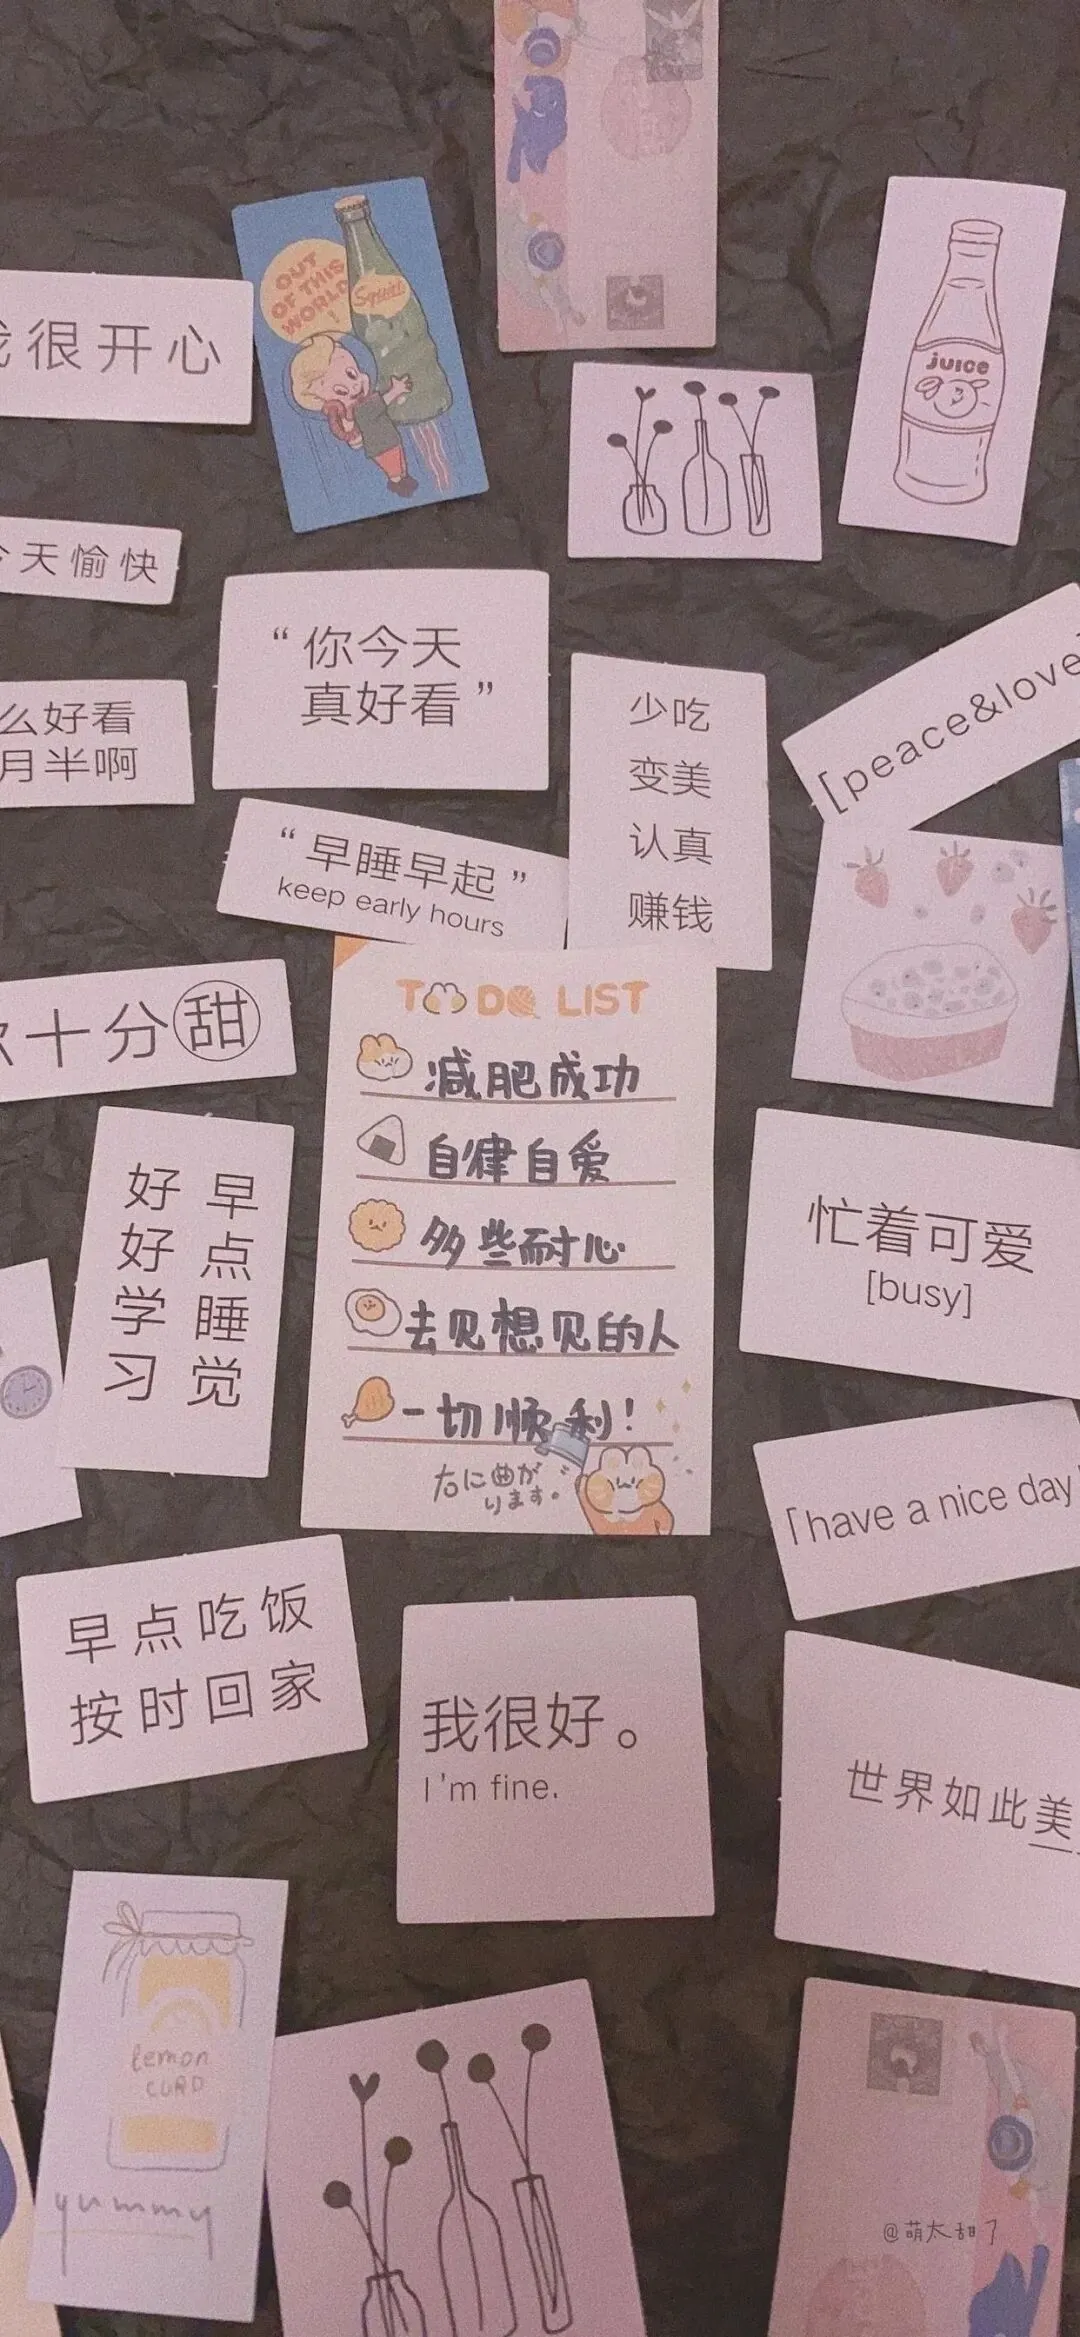 OUT
OF THIS
WORLD
!
Squirt
juice
很开心
天愉快
“你今天
真好看”
么好看
月半啊
少吃
变美
认真
赚钱
[peace&love
“早睡早起”
keep early hours
十分甜
TO DO LIST
减肥成功
自律自爱
多些耐心
去见想见的人
一切顺利！
右に曲が
ります。
早点睡觉
好好学习
忙着可爱
[busy]
「have a nice day
早点吃饭
按时回家
我很好。
I'm fine.
世界如此美
lemon
CURD
yummy
@萌太甜了